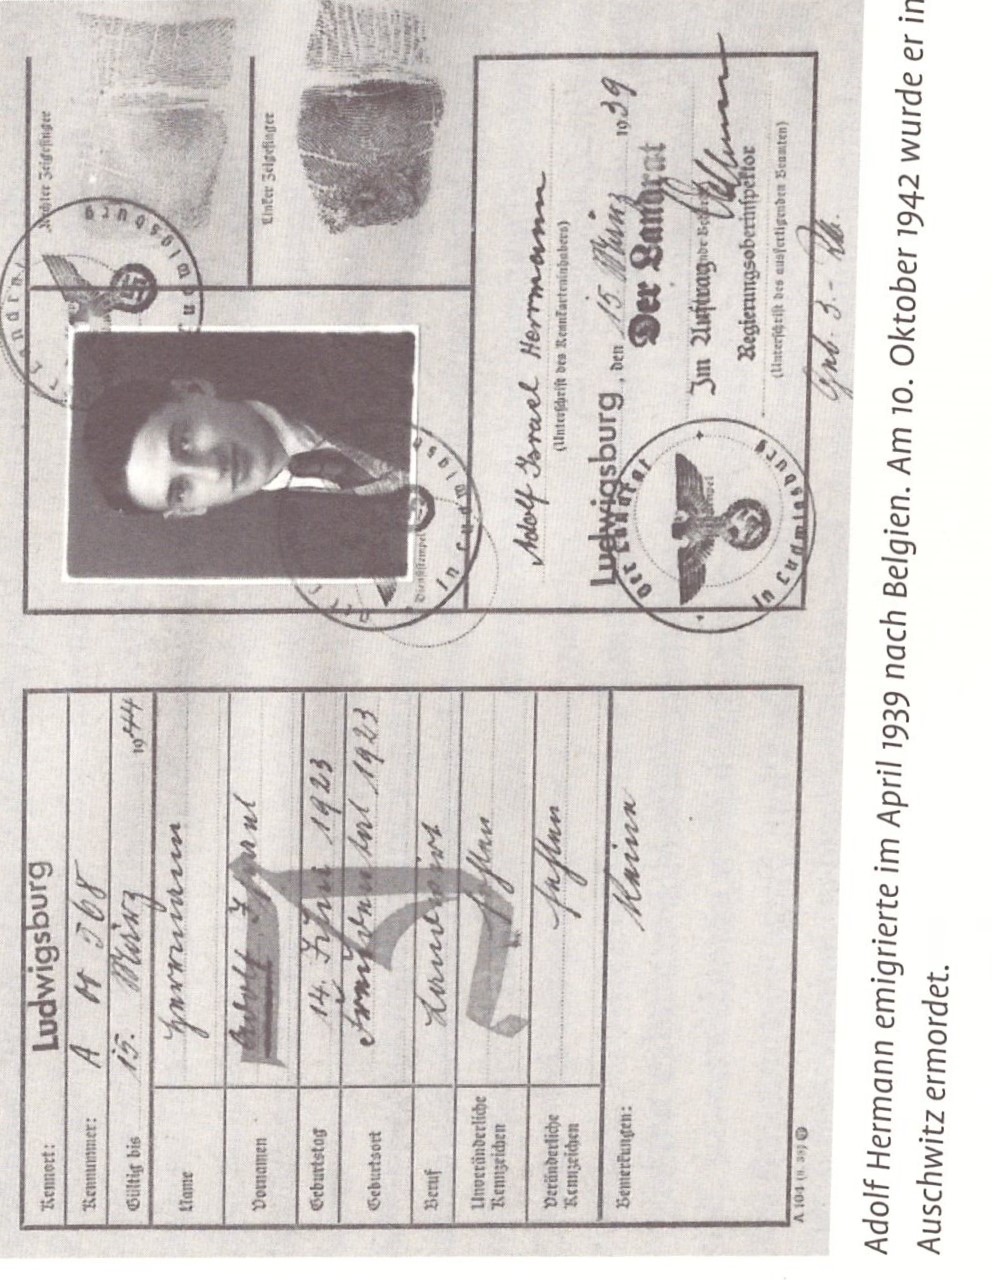 Kennort: Ludwigsburg
Kennummer: A 00568
Gültig bis 15. März 1944
Name Herrmann
Vornamen Adolf Israel
Geburtstag 14. Juni 1923
Geburtsort 1923
Beruf Landwirt
Unveränderliche Kennzeichen fehlen
Veränderliche Kennzeichen fehlen
Bemerkungen: Keine
A 104
Rechter Zeigefinger
Linker Zeigefinger
Der Landrat
in Ludwigsburg
Dienststempel
Der Landrat
in Ludwigsburg
Adolf Israel Herrmann
(Unterschrift des Kennkarteninhabers)
Ludwigsburg, den 15 März 1939
Der Landrat
Im Auftrag
Regierungsoberinspektor
(Unterschrift des ausfertigenden Beamten)
Der Landrat
in Ludwigsburg
Geb. 3.- Rb.
Adolf Hermann emigrierte im April 1939 nach Belgien. Am 10. Oktober 1942 wurde er in
Auschwitz ermordet.